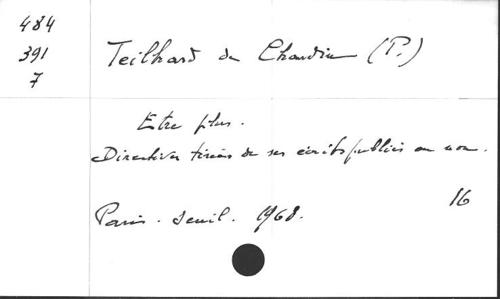 484
391
7
Teilhard de Chardin (P.)
Etre plus.
Directives tirées de ses écrits publiés ou non.
16
Paris. Seuil. 1968.